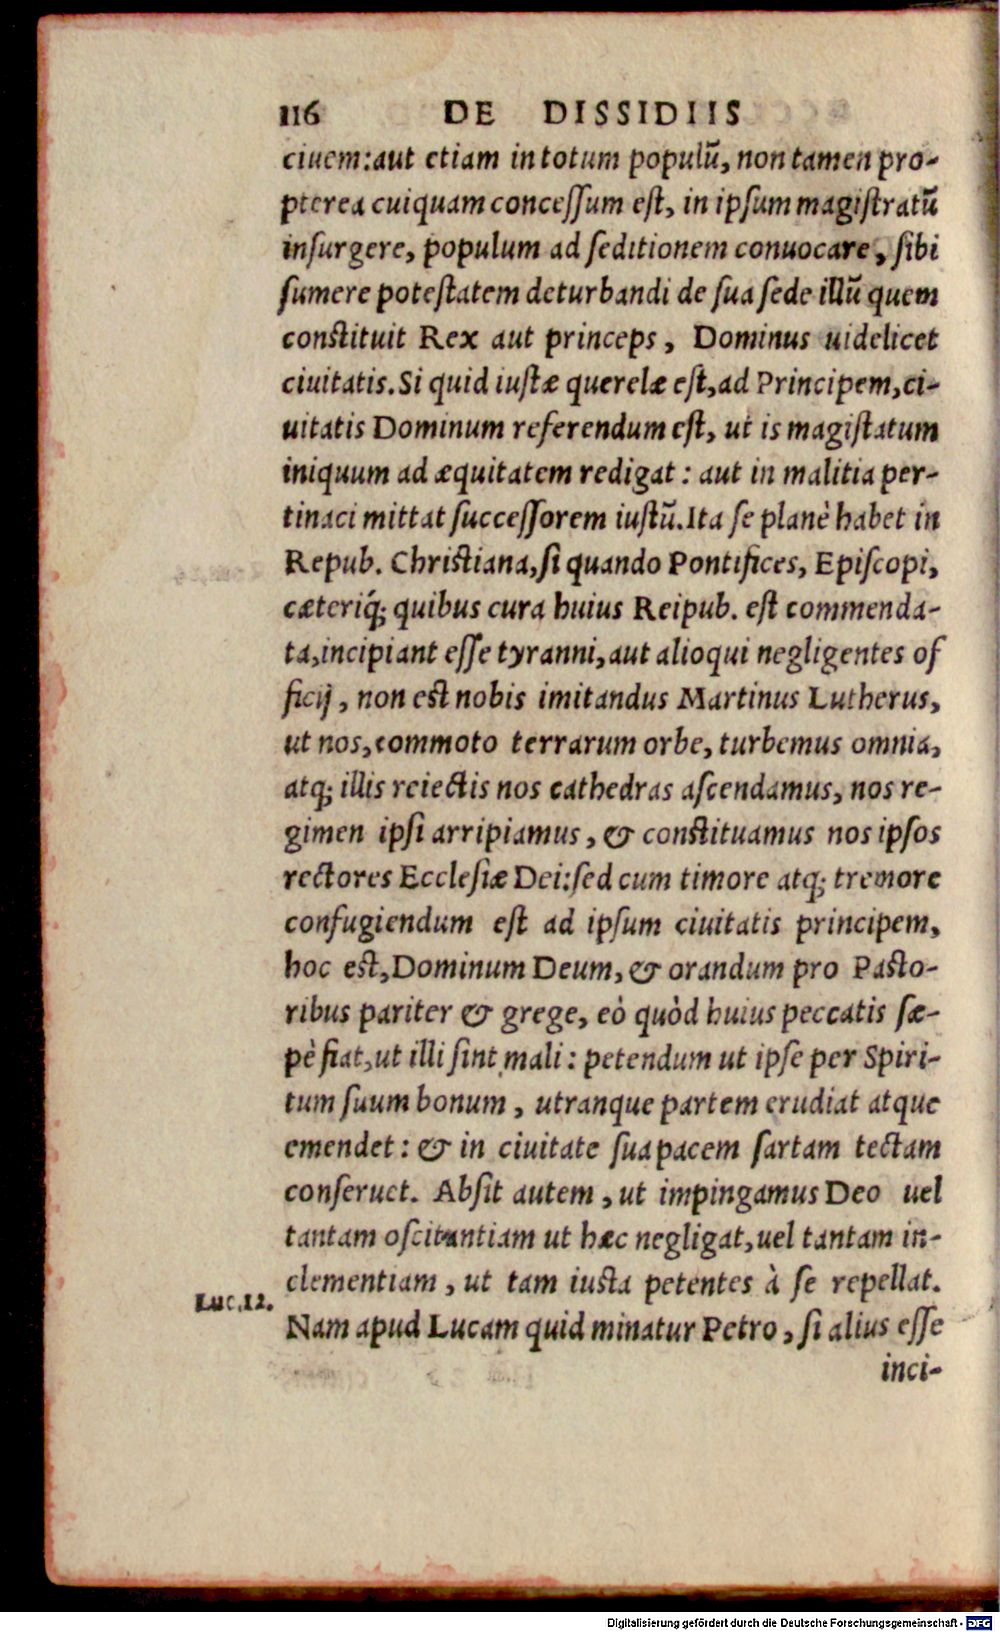 116 DE DISSIDIIS
ciuem: aut etiam in totum populũ, non tamen pro-
pterea cuiquam concessum est, in ipsum magistratũ
insurgere, populum ad seditionem conuocare, sibi
sumere potestatem deturbandi de sua sede illũ quem
constituit Rex aut princeps, Dominus uidelicet
ciuitatis. Si quid iustæ querelæ est, ad Principem, ci-
uitatis Dominum referendum est, ut is magistatum
iniquum ad æquitatem redigat: aut in malitia per-
tinaci mittat successorem iustũ. Ita se planè habet in
Repub. Christiana, si quando Pontifices, Episcopi,
cæteriq́; quibus cura huius Reipub. est commenda-
ta, incipiant esse tyranni, aut alioqui negligentes of
ficij, non est nobis imitandus Martinus Lutherus,
ut nos, commoto terrarum orbe, turbemus omnia,
atq; illis reiectis nos cathedras ascendamus, nos re-
gimen ipsi arripiamus, & constituamus nos ipsos
rectores Ecclesiæ Dei: sed cum timore atq; tremore
confugiendum est ad ipsum ciuitatis principem,
hoc est, Dominum Deum, & orandum pro Pasto-
ribus pariter & grege, eò quòd huius peccatis sæ-
pè fiat, ut illi sint mali: petendum ut ipse per Spiri-
tum suum bonum, utranque partem erudiat atque
emendet: & in ciuitate sua pacem sartam tectam
conseruet. Absit autem, ut impingamus Deo uel
tantam oscitantiam ut hæc negligat, uel tantam in-
clementiam, ut tam iusta petentes à se repellat.
Luc.12.
Nam apud Lucam quid minatur Petro, si alius esse
inci-
Digitalisierung gefördert durch die Deutsche Forschungsgemeinschaft - DFG